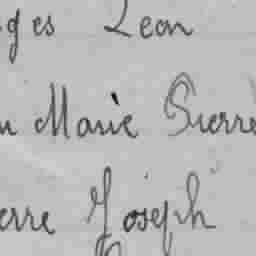 ges Leon
u Marie Pierre
erre Joseph